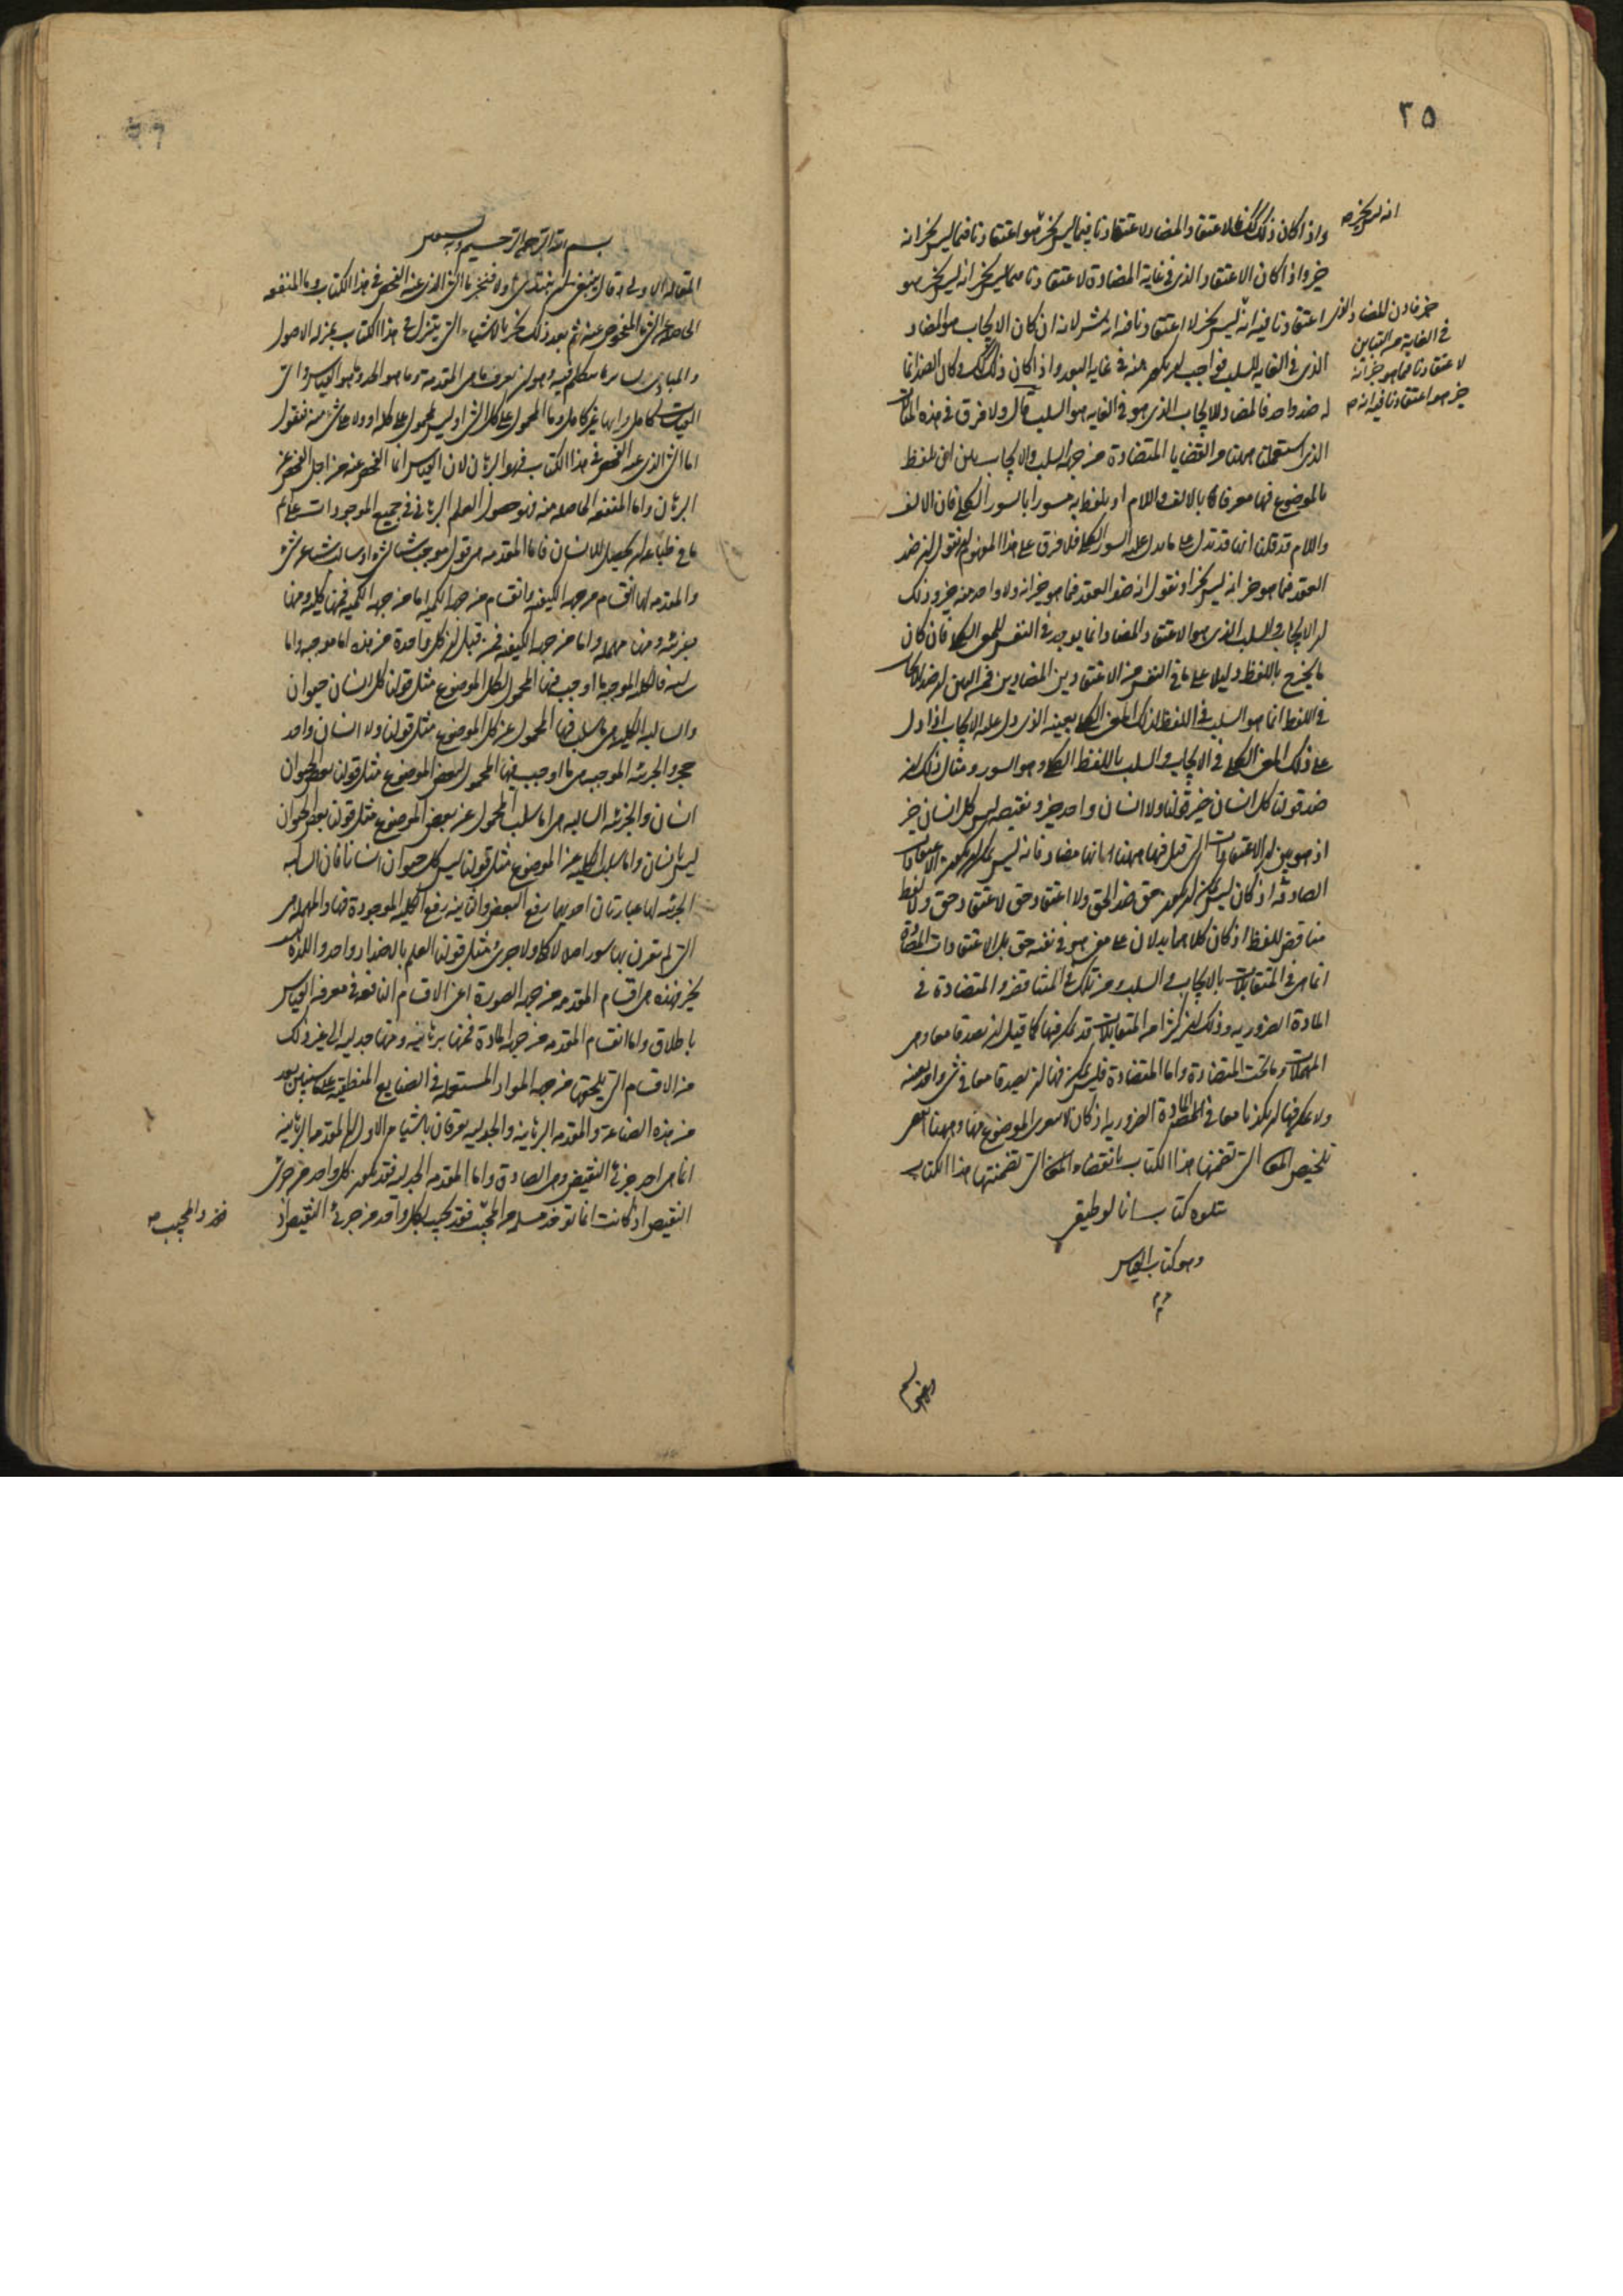 ٣٥
انه ليس بخير صح
واذا كان ذلك كذلك فالاعتقاد المضاد لاعتقادنا فيما ليس بخير هو اعتقادنا فيما ليس بخير انه
خير واذا كان الاعتقاد الذى فى غاية المضادة لاعتقادنا فيما ليس بخير انه ليس بخير هو
اعتقادنا فيه انه ليس بخير لا اعتقادنا فيه انه شر لانه ان كان الايجاب هو المضاد
خير فاذن المضاد الذى
فى الغاية من التباين
لاعتقادنا فيما هو خير انه
خير هو اعتقادنا فيه انه صح
الذى فى الغاية للسلب فواجب ان يكون منه فى غاية البعد واذا كان ذلك كذلك وكان الضد انما
له ضد واحد فالمضاد للايجاب الذى هو فى الغاية هو السلب قال ولا فرق فى هذه
الذى استعملنا ههنا من القضايا المتضادة من جهة السلب والايجاب بين ان يلفظ
بالموضوع فيها معرفا بالالف واللام او يلفظ به مسورا بالسور الكلى فان الالف
واللام قد قلنا انها قد تدل على ما يدل عليه السور الكلى فلا فرق على هذا المفهوم ان نقول ان ضد
العقد فيما هو خير انه ليس بخير او نقول ان ضد العقد فيما هو خير انه ولا واحد منه خير وذلك
ان الايجاب والسلب الذى هو الاعتقاد المضاد انما يوجد فى النفس للمعنى الكلى فان كان
ما يخرج باللفظ دليلا على ما فى النفس من الاعتقادين المضادين فمن البين ان ضد الايجاب
فى اللفظ انما هو السلب فى اللفظ لذلك المعنى الكلى بعينه الذى دل عليه الايجاب اذا دل
على ذلك المعنى الكلى فى الايجاب والسلب باللفظ الكلى وهو السور ومثال ذلك ان
ضد قولنا كل انسان خير قولنا ولا انسان واحد خير ونقيضه ليس كل انسان خير
اذ هو بين ان الاعتقادات التى قيل فيها ههنا انها مضادة فانه ليس يمكن ان يكون الاعتقادات
الصادقة اذ كان ليس يمكن ان يكون حق ضد الحق ولا اعتقاد حق لاعتقاد حق ولا لفظ
مناقض للفظ اذ كان كلاهما يدلان على معنى هو فى نفسه حق بل الاعتقادات المتضادة
انما هى فى المتقابلات بالايجاب والسلب ومن تلك فى المتناقضة والمتضادة فى
المادة الضرورية وذلك ان كثيرا من المتقابلات قد يمكن فيها كما قيل ان يصدقا معا وهى
المهملات وما تحت المتضادة واما المتضادة فليس يمكن فيها ان يصدقا معا فى شى واحد بعينه
ولا يمكن فيها ان يكذبا معا فى المادة الضرورية اذ كان لا يعرى الموضوع منها وههنا انقضى
تلخيص المعانى التى تضمنها هذا الكتاب بانقضاء المعانى التى تضمنتها هذا الكتاب
يتلوه كتاب انالوطيقى
وهو كتاب القياس
بسم الله الرحمن الرحيم وبه نستعين
المقالة الاولى قال ينبغى ان نبتدى اولا فنخبر ما الشى الذى عنه الفحص فى هذا الكتاب وما المنفعة
الحاصلة من الشى المفحوص عنه ثم بعد ذلك نخبر بالاشياء التى يتنزل فى هذا الكتاب بمنزلة الاصول
والمبادى لسائر ما يتكلم فيه وهو ان نعرف ما هى المقدمة وما هو الحد وما هو القياس واى
القياسات كامل وايها غير كامل وما المحمول على كل الشى او ليس محمول على كله او ولا على شى منه فنقول
اما الشى الذى عنه الفحص فى هذا الكتاب فهو البرهان لان القياس انما الفحص عنه من اجل الفحص عن
البرهان واما المنفعة الحاصلة منه فهو حصول العلم البرهانى فى جميع الموجودات على اتم
ما فى طباعه ان يحصل للانسان فاما المقدمة هى قول موجب شيئا لشى او سالب شيئا عن شى
والمقدمة لها انقسام من جهة الكيفية وانقسام من جهة الكمية اما من جهة الكمية فمنها كلية ومنها
جزئية ومنها مهملة واما من جهة الكيفية فمن قبل ان كل واحدة من هذه اما موجبة واما
سالبة فالكلية الموجبة ما اوجب فيها المحمول لكل الموضوع مثل قولنا كل انسان حيوان
والسالبة الكلية هى ما سلب فيها المحمول عن كل الموضوع مثل قولنا ولا انسان واحد
حجر والجزئية الموجبة هى ما اوجب فيها المحمول لبعض الموضوع مثل قولنا بعض الحيوان
انسان والجزئية السالبة هى اما سلب المحمول عن بعض الموضوع مثل قولنا بعض الحيوان
ليس بانسان واما سلب الكلية عن الموضوع مثل قولنا ليس كل حيوان انسانا فان السالبة
الجزئية لها عبارتان احديهما رفع البعض والثانية رفع الكلية الموجودة فيها والمهملة هى
التى لم يقرن بها سور اصلا لا كلى ولا جزئى مثل قولنا العلم بالاضداد واحد واللذة ليست
بخير فهذه هى اقسام المقدمة من جهة الصورة اعنى الاقسام النافعة فى معرفة القياس
باطلاق واما انقسام المقدمة من جهة المادة فمنها برهانية ومنها جدلية الى غير ذلك
من الاقسام التى يلحقها من جهة المواد المستعملة فى الصنايع المنطقية على ما سنبين بعد
من هذه الصناعة والمقدمة البرهانية والجدلية يفرقان باشياء الاول ان المقدمة البرهانية
انما هى احد جزئى النقيض وهى الصادق واما المقدمة الجدلية فقد تكون كل واحد من جزئى
النقيض اذ كانت انما توخذ متسلمة من المجيب فقد يجيب بكل واحد من جزئى النقيض اذ